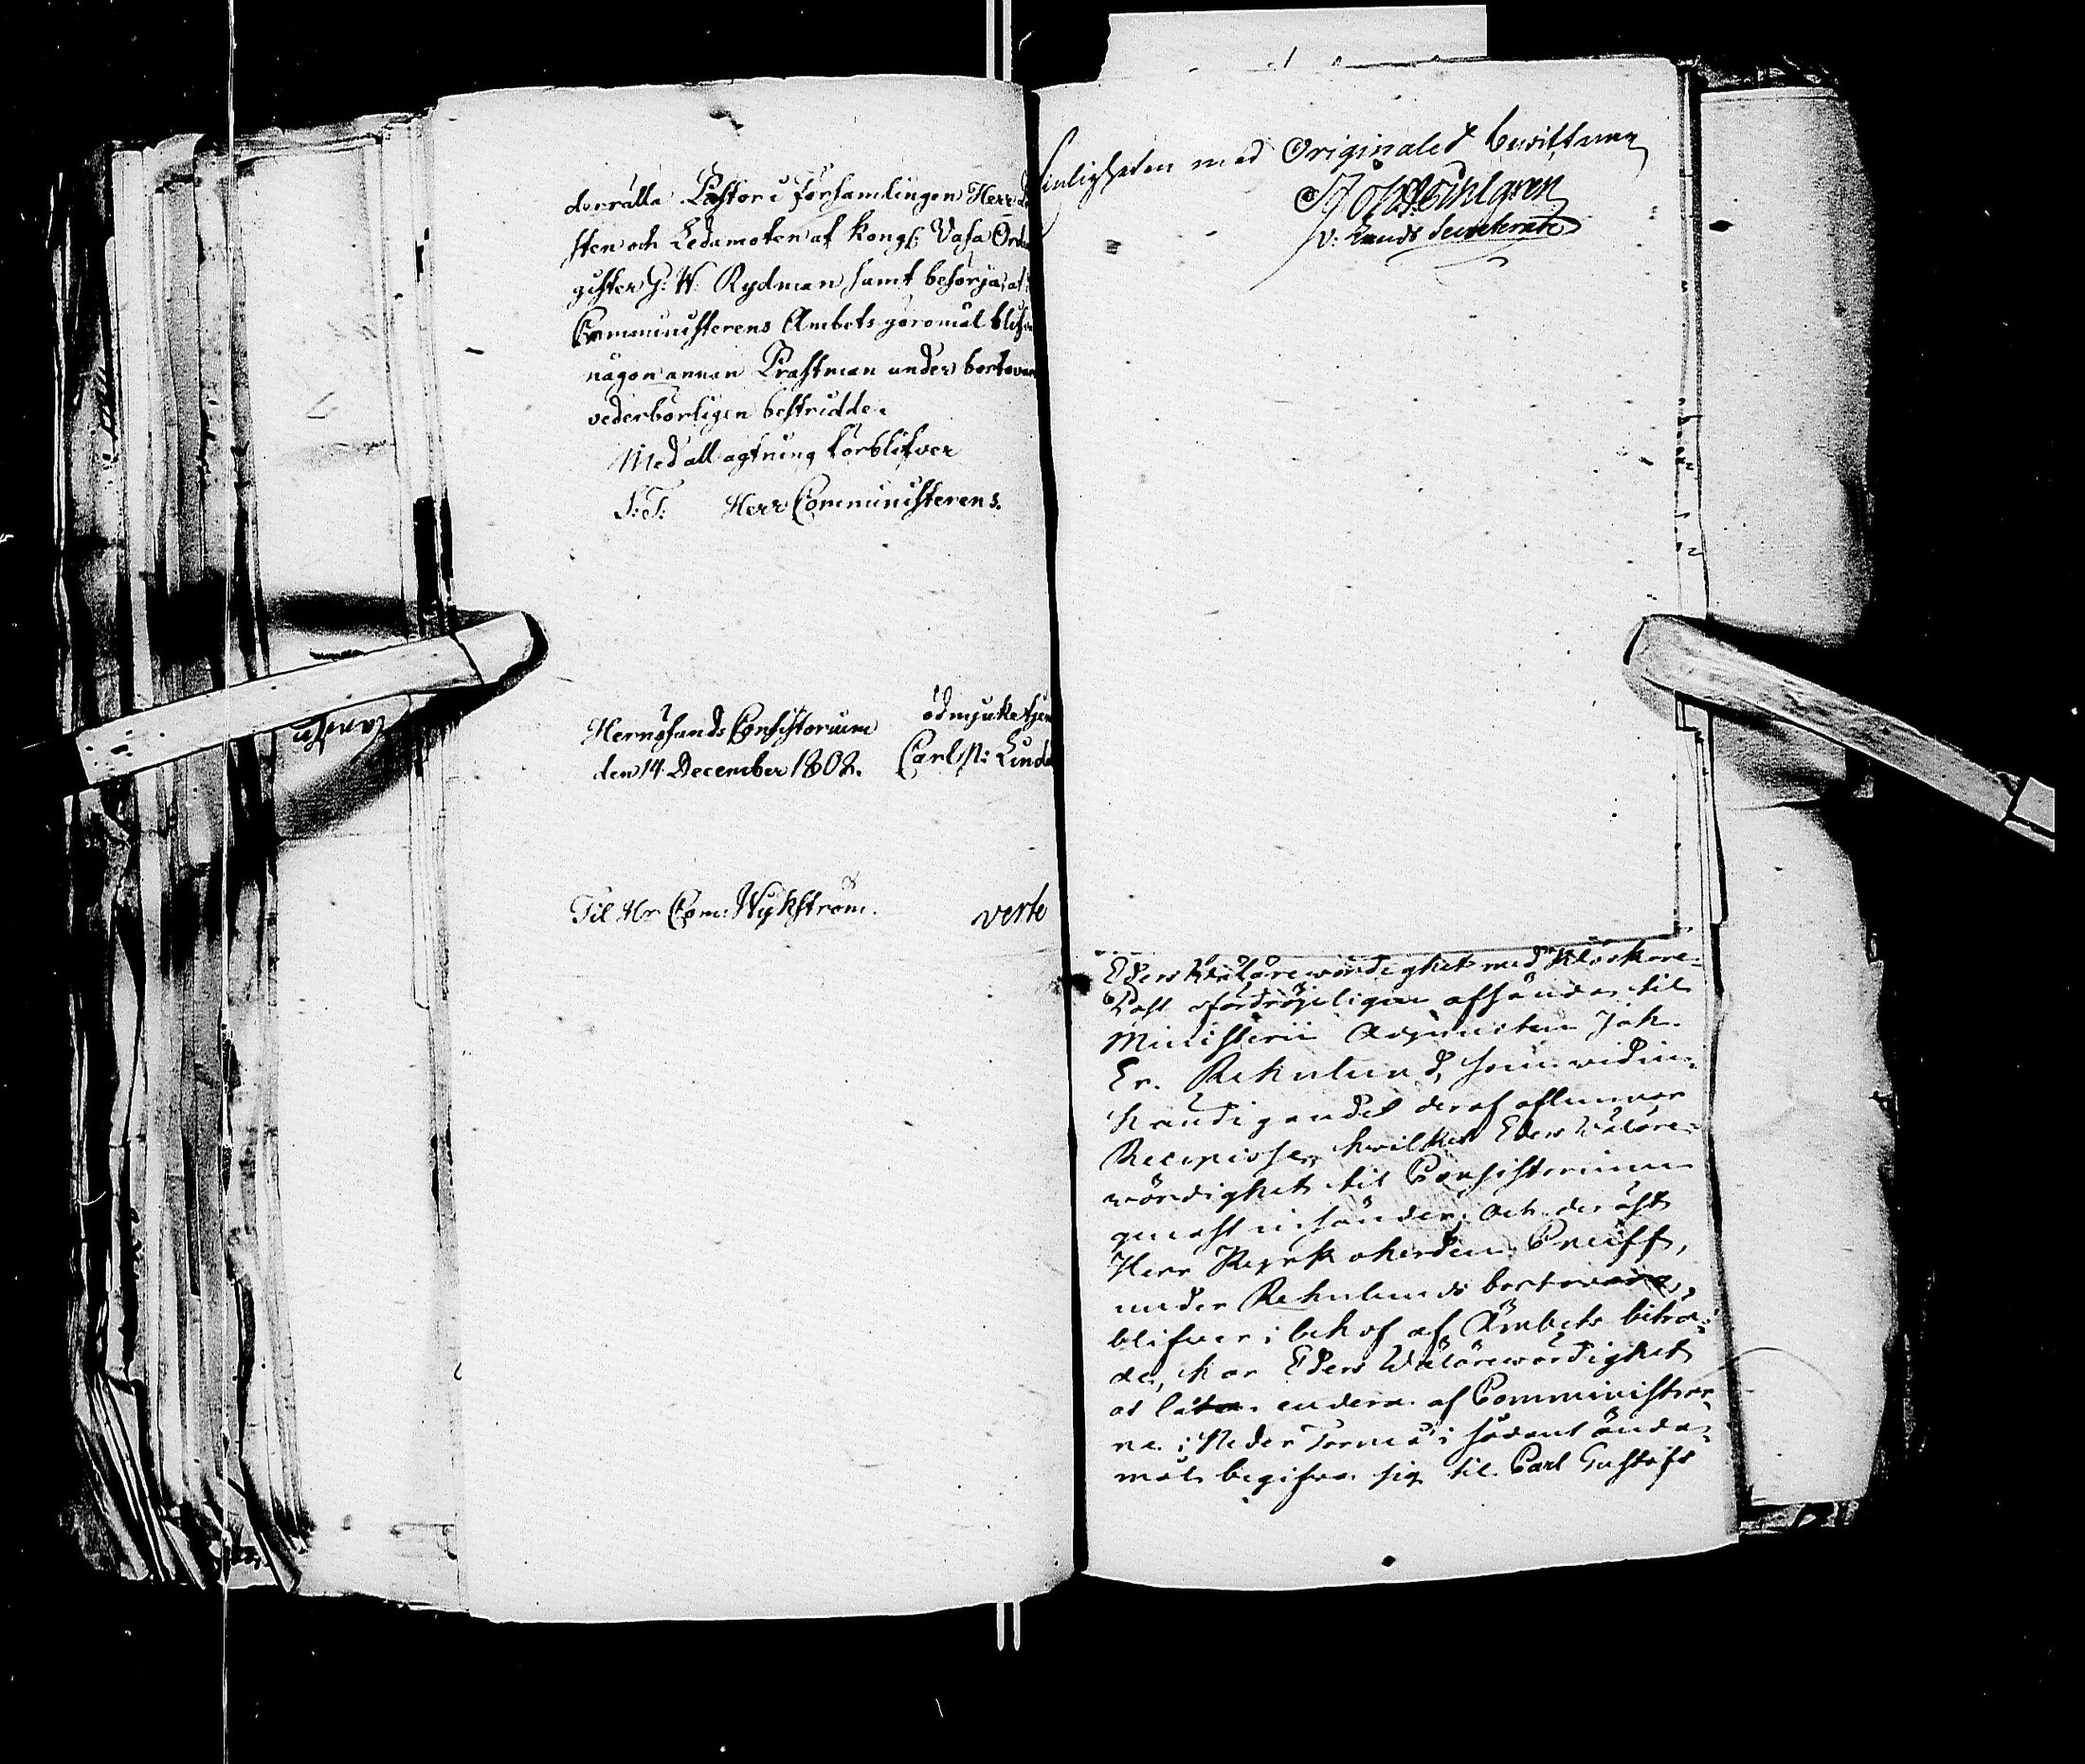 derrätta Pastor i Församlingen Herr
sten och Ledamoten af Kongl. Vasa Ord
gister G: W. Rydman, samt besörja, at
Comministerens Ambets göromål blifva
någon annan Prästman under bortovar
vederbörligen bestridde.
Med all agtning förblifver
S: T: Herr Comministerens.
ödmjuke tjen
Hernösands Consistorium
den 14 December 1808. Carl N: Lind
Til Hr Com: Wykström.
verte
enligheten med Originalet bewittnar
v: Lands Secreterare
Eders Wälärewördighet med Klockare-
Bost ofördröjeligen afsänder til
Ministerii Adjuncten Joh.
Er. Rehnlund, som vid in-
händigandet deraf aflemnar
Recipisse, hvilket Eders Wäläre-
wördighet til Consistorium
genast insänder; och derest
Herr Kyrkoherden Pneiff,
under Rehnlunds bortovaro,
blifver i behof af Ämbets biträ-
de, har Eders Wälärewördighet
at låta endera af Comministrar
ne i Neder Torneå i sådant ända-
mål begifva sig til Carl Gustafs